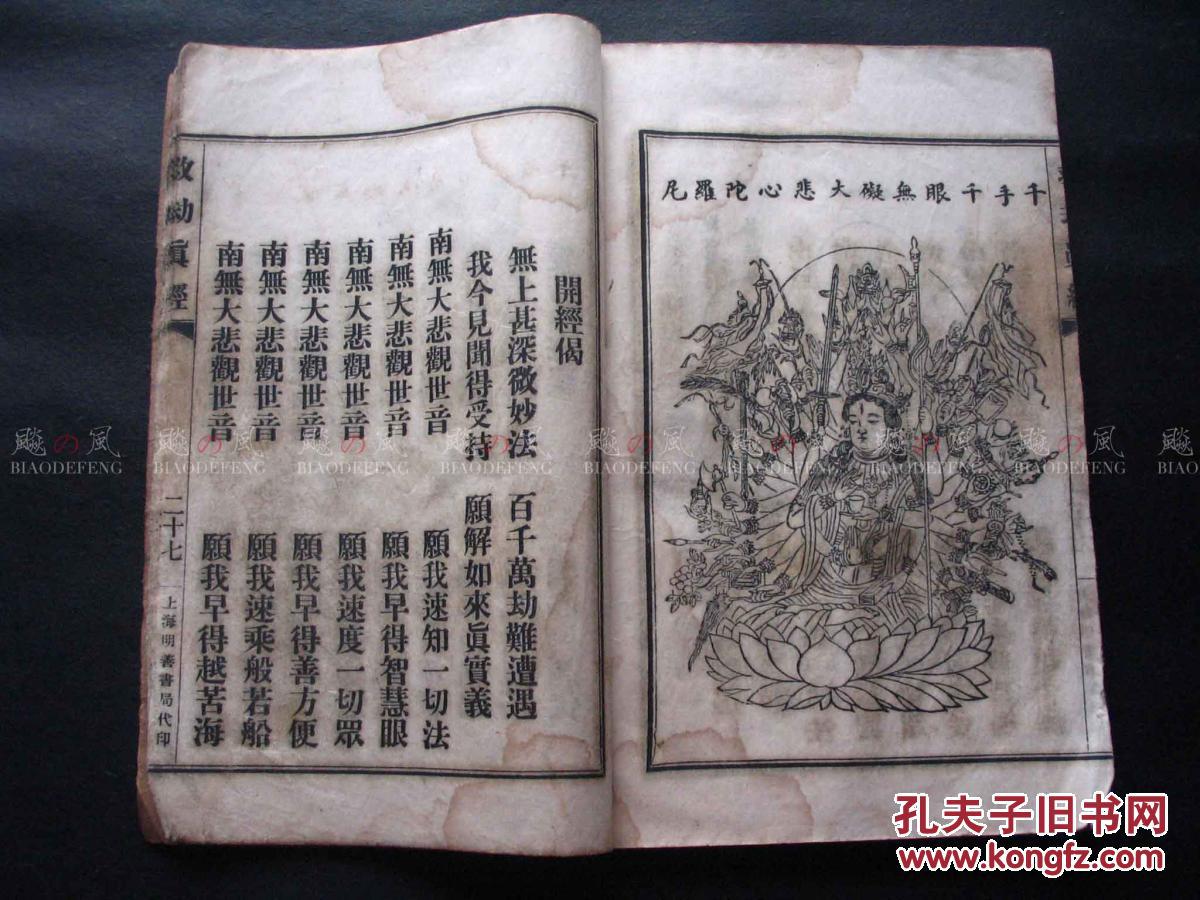 千手千眼無礙大悲心陀羅尼
開經偈
無上甚深微妙法 百千萬劫難遭遇
我今見聞得受持 願解如來眞實義
南無大悲觀世音 願我速知一切法
南無大悲觀世音 願我早得智慧眼
南無大悲觀世音 願我速度一切眾
南無大悲觀世音 願我早得善方便
南無大悲觀世音 願我速乘般若船
南無大悲觀世音 願我早得越苦海
救劫眞經 二十七 上海明善書局代印
の風 の風 の風 の風 の風 の風 の風 の風
BIAODEFENG BIAODEFENG BIAODEFENG BIAODEFENG BIAODEFENG BIAODEFENG BIAODEFENG BIAODEFENG
孔夫子旧书网
www.kongfz.com